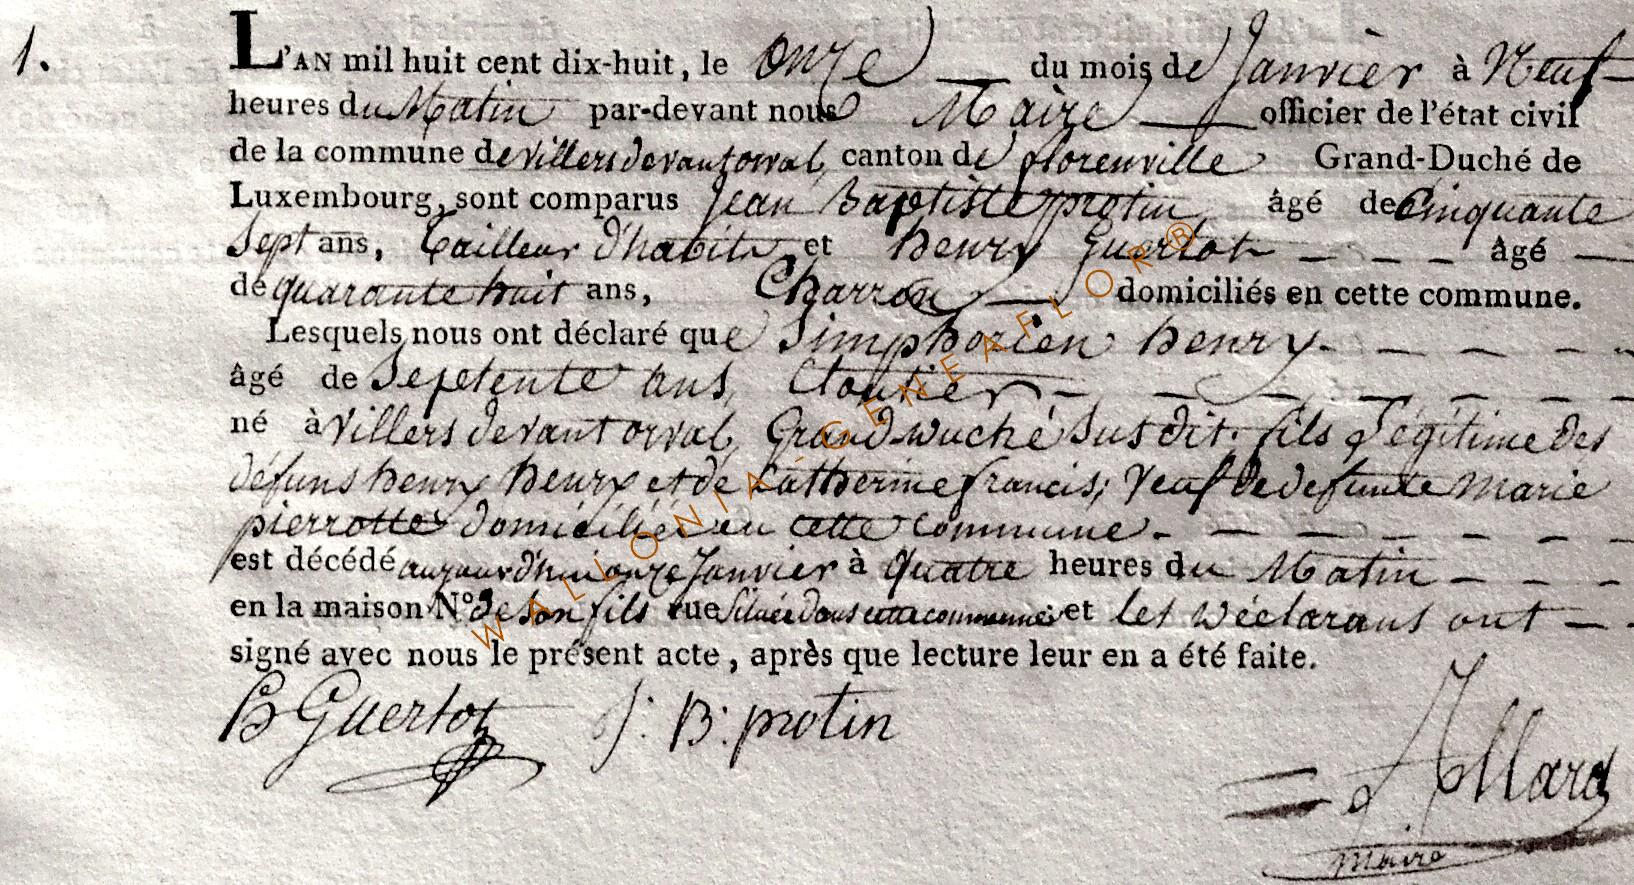 1. L'AN mil huit cent dix-huit, le onze du mois de Janvier à Neuf
heures du Matin par-devant nous Maire officier de l'état civil
de la commune de villers devant orval, canton de florenville Grand-Duché de
Luxembourg, sont comparus Jean Baptiste protin, âgé de Cinquante
Sept ans, tailleur d'habits et henry Guerlot âgé
de quarante huit ans, Charron domiciliés en cette commune.
Lesquels nous ont déclaré que Simphorien henry
âgé de Septente ans, Cloutier
né à villers devant orval, Grand Duché Susdit. fils Légitime des
défuns henry henry et de Catherine francis; veuf de defunte Marie
pierrotte domicilié en cette commune.
est décédé aujourd'hui onze Janvier à quatre heures du Matin
en la maison N° de son fils rue Située dans cette commune et les déclarans ont
signé avec nous le présent acte, après que lecture leur en a été faite.
h Guerlot J: B: protin
Allard
Maire
WALLONIA-GENEAFLOR®